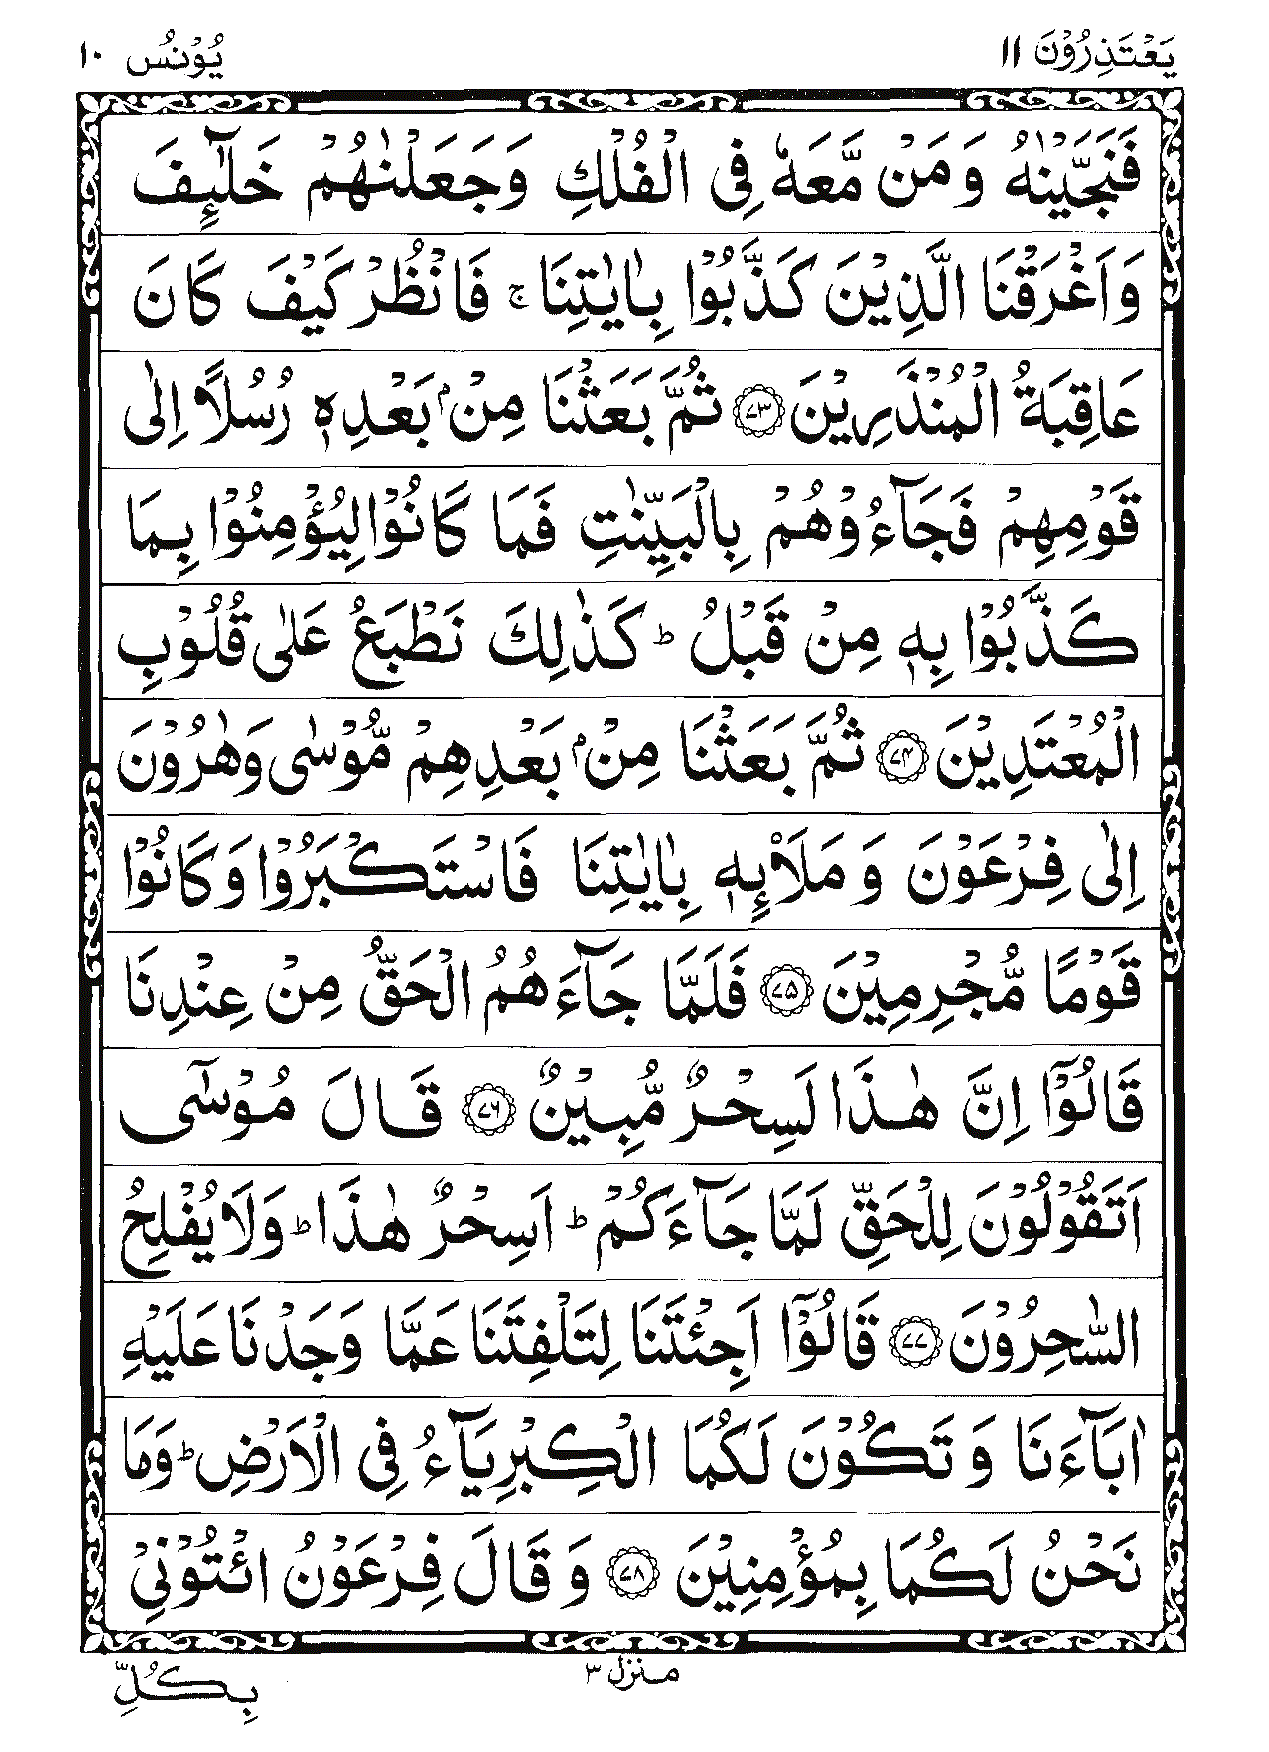 يَعْتَذِرُوْنَ ١١
يُوْنُس ١٠
فَنَجَّيْنٰهُ وَ مَنْ مَّعَهٗ فِى الْفُلْكِ وَجَعَلْنٰهُمْ خَلٰٓئِفَ
وَاَغْرَقْنَا الَّذِيْنَ كَذَّبُوْا بِاٰيٰتِنَا ۚ فَانْظُرْ كَيْفَ كَانَ
عَاقِبَةُ الْمُنْذَرِيْنَ ﴿۷۳﴾ ثُمَّ بَعَثْنَا مِنْۢ بَعْدِهٖ رُسُلًا اِلٰى
قَوْمِهِمْ فَجَآءُوْهُمْ بِالْبَيِّنٰتِ فَمَا كَانُوْا لِيُؤْمِنُوْا بِمَا
كَذَّبُوْا بِهٖ مِنْ قَبْلُ ؕ كَذٰلِكَ نَطْبَعُ عَلٰى قُلُوْبِ
الْمُعْتَدِيْنَ ﴿۷۴﴾ ثُمَّ بَعَثْنَا مِنْۢ بَعْدِهِمْ مُّوْسٰى وَهٰرُوْنَ
اِلٰى فِرْعَوْنَ وَ مَلَا۟ئِهٖ بِاٰيٰتِنَا فَاسْتَكْبَرُوْا وَكَانُوْا
قَوْمًا مُّجْرِمِيْنَ ﴿۷۵﴾ فَلَمَّا جَآءَهُمُ الْحَقُّ مِنْ عِنْدِنَا
قَالُوْٓا اِنَّ هٰذَا لَسِحْرٌ مُّبِيْنٌ ﴿۷۶﴾ قَالَ مُوْسٰٓى
اَتَقُوْلُوْنَ لِلْحَقِّ لَمَّا جَآءَكُمْ ؕ اَسِحْرٌ هٰذَا ؕ وَلَا يُفْلِحُ
السّٰحِرُوْنَ ﴿۷۷﴾ قَالُوْٓا اَجِئْتَنَا لِتَلْفِتَنَا عَمَّا وَجَدْنَا عَلَيْهِ
اٰبَآءَنَا وَ تَكُوْنَ لَكُمَا الْكِبْرِيَآءُ فِى الْاَرْضِ ؕ وَمَا
نَحْنُ لَكُمَا بِمُؤْمِنِيْنَ ﴿۷۸﴾ وَ قَالَ فِرْعَوْنُ ائْتُوْنِىْ
منزل ٣
بِكُلِّ